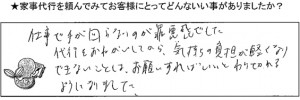 ★家事代行を頼んでみてお客様にとってどんないい事がありましたか？
仕事で手が回らないのが罪悪感でした
代行をおねがいしてから、気持ちの負担が軽くなり
できないことは、お願いすればいいとわりきれる
ようになりました